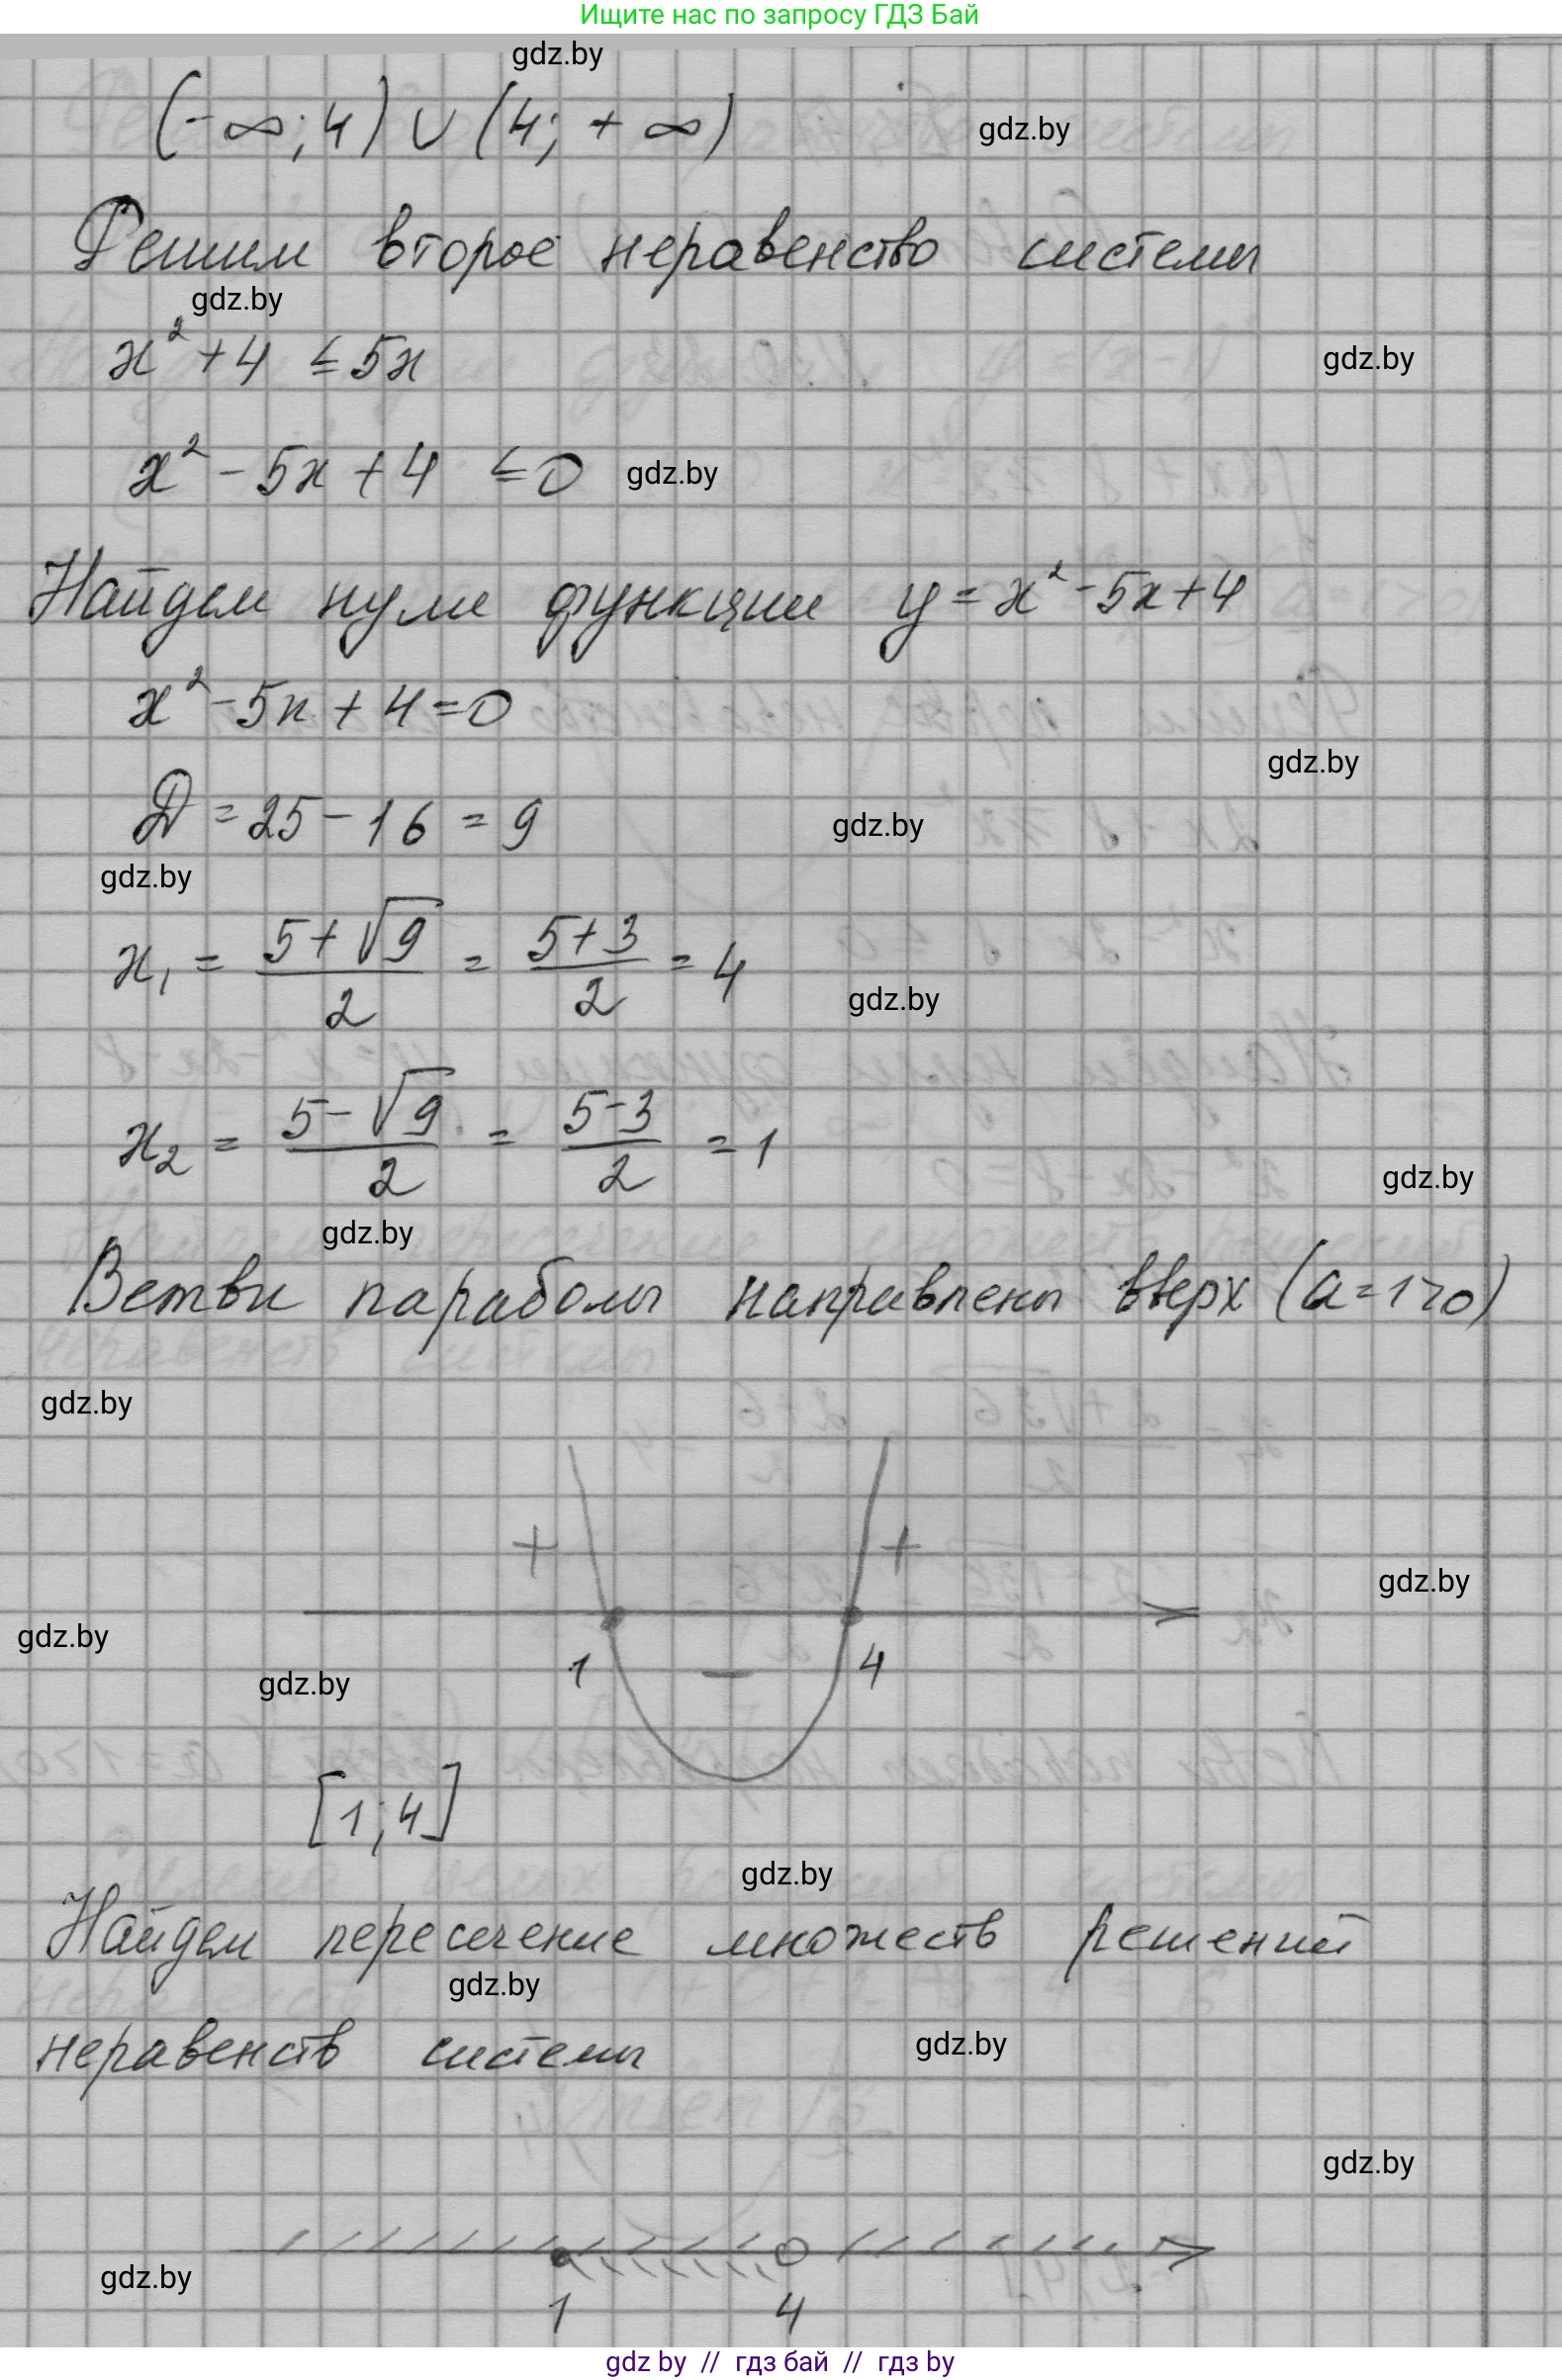 Ищите нас по запросу ГДЗ Бай
gdz.by
(-∞; 4) ∪ (4; +∞)
gdz.by
Решим второе неравенство системы
gdz.by
x² + 4 ≤ 5x
gdz.by
x² - 5x + 4 ≤ 0
gdz.by
Найдем нули функции y = x² - 5x + 4
x² - 5x + 4 = 0
gdz.by
D = 25 - 16 = 9
gdz.by
gdz.by
x₁ = (5 + √9)/2 = (5 + 3)/2 = 4
gdz.by
x₂ = (5 - √9)/2 = (5 - 3)/2 = 1
gdz.by
gdz.by
Ветви параболы направлены вверх (a = 1 > 0)
gdz.by
+ +
gdz.by
gdz.by
1 - 4
gdz.by
[1; 4]
gdz.by
Найдем пересечение множеств решений
gdz.by
неравенств системы
gdz.by
gdz.by
gdz.by
1 4
gdz by // гдз бай // гдз by